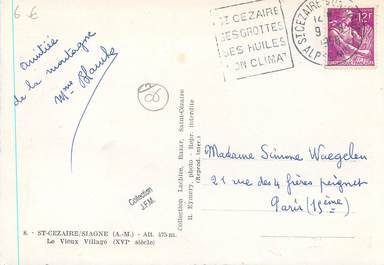 6 €
amitié
de la montagne
Mme Blanche
ST CEZAIRE
SES GROTTES
SES HUILES
SON CLIMAT
ST CEZAIRE
ALP
12F
06
Collection
J.F.M.
Collection Lachino, Bazar, Saint-Cézaire
R. Eymery, photo - Repr. interdite
(Reprod. inter.)
Madame Simone Waegelen
21 rue des 4 frères peignet
Paris (15ème)
8. - ST-CEZAIRE/SIAGNE (A.-M.) - Alt. 475 m.
Le Vieux Village (XVIe siècle)